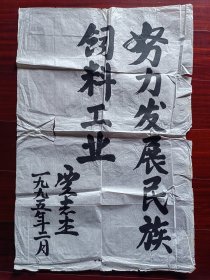 努力发展民族
饲料工业
一九八五年十二月